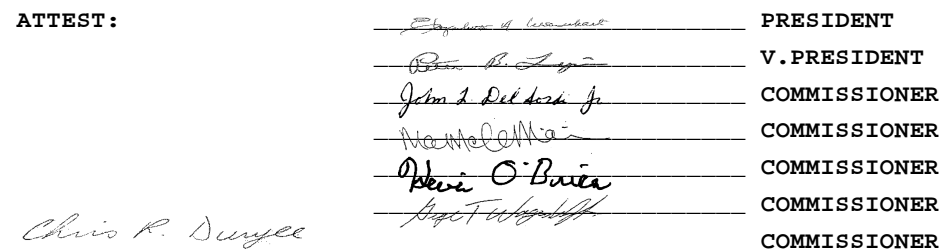 ATTEST: PRESIDENT
Peter B. V.PRESIDENT
John L Del Sordi Jr COMMISSIONER
COMMISSIONER
Kevin O'Brien COMMISSIONER
COMMISSIONER
Chris R. Duryee COMMISSIONER